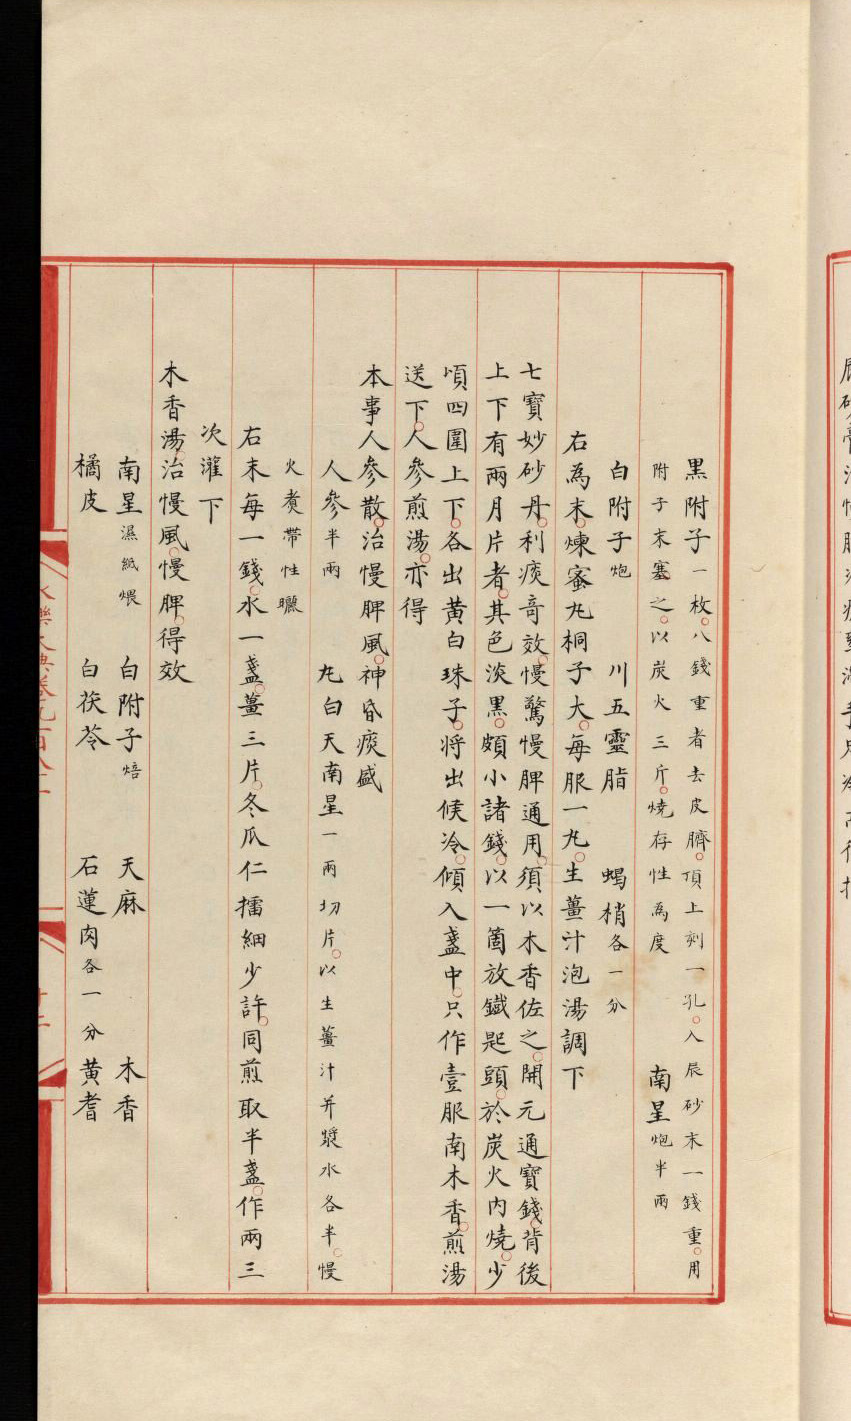 黑附子一枚八錢重者去皮臍頂上剜一孔入辰砂末一錢重用
附子末塞之以炭火三斤燒存性為度 南星炮半兩
白附子炮 川五靈脂 蝎梢各一分
右為末煉蜜丸桐子大每服一丸生薑汁泡湯調下
七寶妙砂丹利痰奇效慢驚慢脾通用須以木香佐之開元通寶錢背後
上下有兩月片者其色淡黑頗小諸錢以一箇放鐵匙頭於炭火內燒少
頃四圍上下各出黃白珠子將出候冷傾入盞中只作壹服南木香煎湯
送下人參煎湯亦得
本事人參散治慢脾風神昏痰盛
人參半兩 圥白天南星一兩切片以生薑汁并漿水各半慢
火煮帶性曬
右末每一錢水一盞薑三片冬瓜仁擂細少許同煎取半盞作兩三
次灌下
木香湯治慢風慢脾得效
南星濕紙煨 白附子焙 天麻 木香
橘皮 白茯苓 石蓮肉各一分 黃耆
永樂大典卷九百八十一